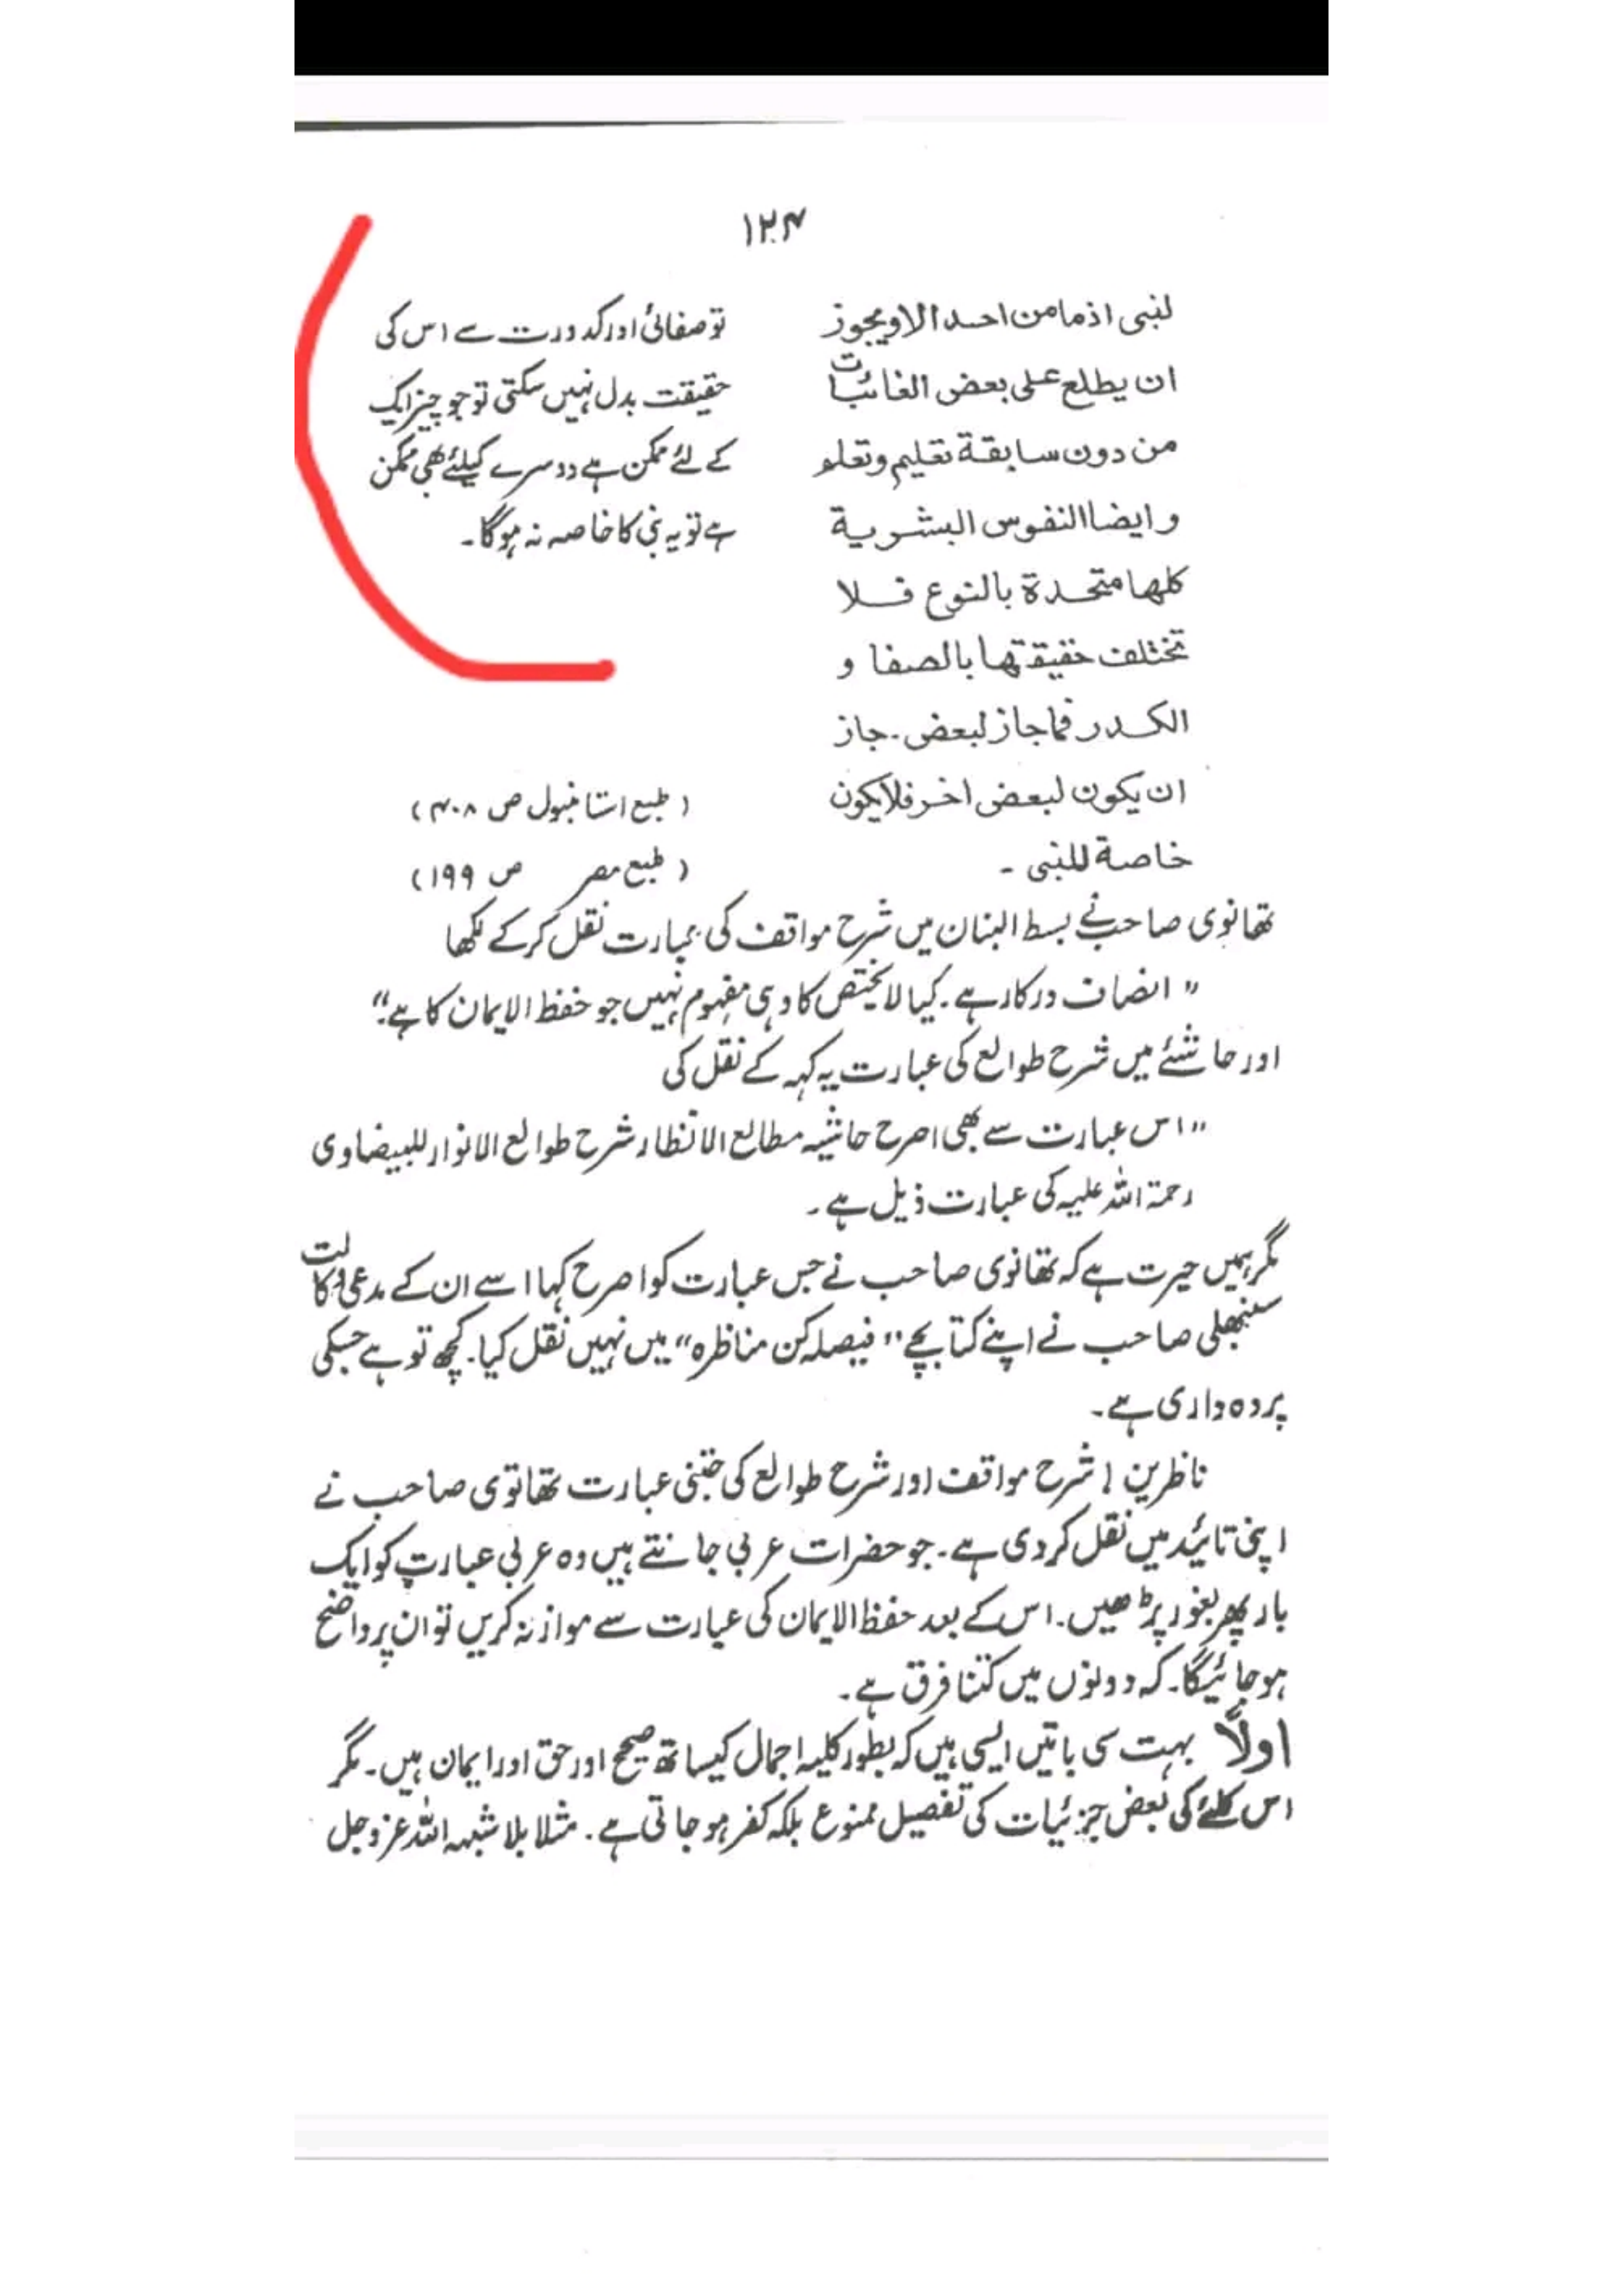 ۱۲۴
لنبی اذمامن احد الا ویجوز
ان یطلع علی بعض الغائبات
من دون سابقة تعلیم وتعلم
وایضا النفوس البشریة
کلها متحدة بالنوع فلا
تختلف حقیقتها بالصفا و
الکدر فما جاز لبعض۔ جاز
ان یکون لبعض اخر فلا یکون
خاصة للنبی ۔
تو صفائی اور کدورت سے اس کی
حقیقت بدل نہیں سکتی تو جو چیز ایک
کے لئے ممکن ہے دوسرے کیلئے بھی ممکن
ہے تو یہ نبی کا خاصہ نہ ہوگا۔
(طبع استانبول ص ۴۰۸)
(طبع مصر ص ۱۹۹)
تھانوی صاحب نے بسط البنان میں شرح مواقف کی عبارت نقل کرکے لکھا
" انصاف درکار ہے۔ کیا لا یختص کا وہی مفہوم نہیں جو حفظ الایمان کا ہے"
اور حاشئے میں شرح طوالع کی عبارت یہ کہہ کے نقل کی
"اس عبارت سے بھی اصرح حاشیہ مطالع الانظار شرح طوالع الانوار للبیضاوی
رحمۃ اللہ علیہ کی عبارت ذیل ہے۔
مگر ہمیں حیرت ہے کہ تھانوی صاحب نے جس عبارت کو اصرح کہا اسے ان کے مدعی وکالت
سنبھلی صاحب نے اپنے کتابچے "فیصلہ کن مناظرہ" میں نہیں نقل کیا۔ کچھ تو ہے جسکی
پردہ داری ہے۔
ناظرین! شرح مواقف اور شرح طوالع کی جتنی عبارت تھانوی صاحب نے
اپنی تائید میں نقل کر دی ہے۔ جو حضرات عربی جانتے ہیں وہ عربی عبارت کو ایک
بار پھر بغور پڑھیں۔ اس کے بعد حفظ الایمان کی عبارت سے موازنہ کریں تو ان پر واضح
ہو جائیگا۔ کہ دونوں میں کتنا فرق ہے۔
اولاً بہت سی باتیں ایسی ہیں کہ بطور کلیہ اجمال کیساتھ صحیح اور حق اور ایمان ہیں۔ مگر
اس کلئے کی بعض جزئیات کی تفصیل ممنوع بلکہ کفر ہو جاتی ہے۔ مثلا بلا شبہہ اللہ عزوجل